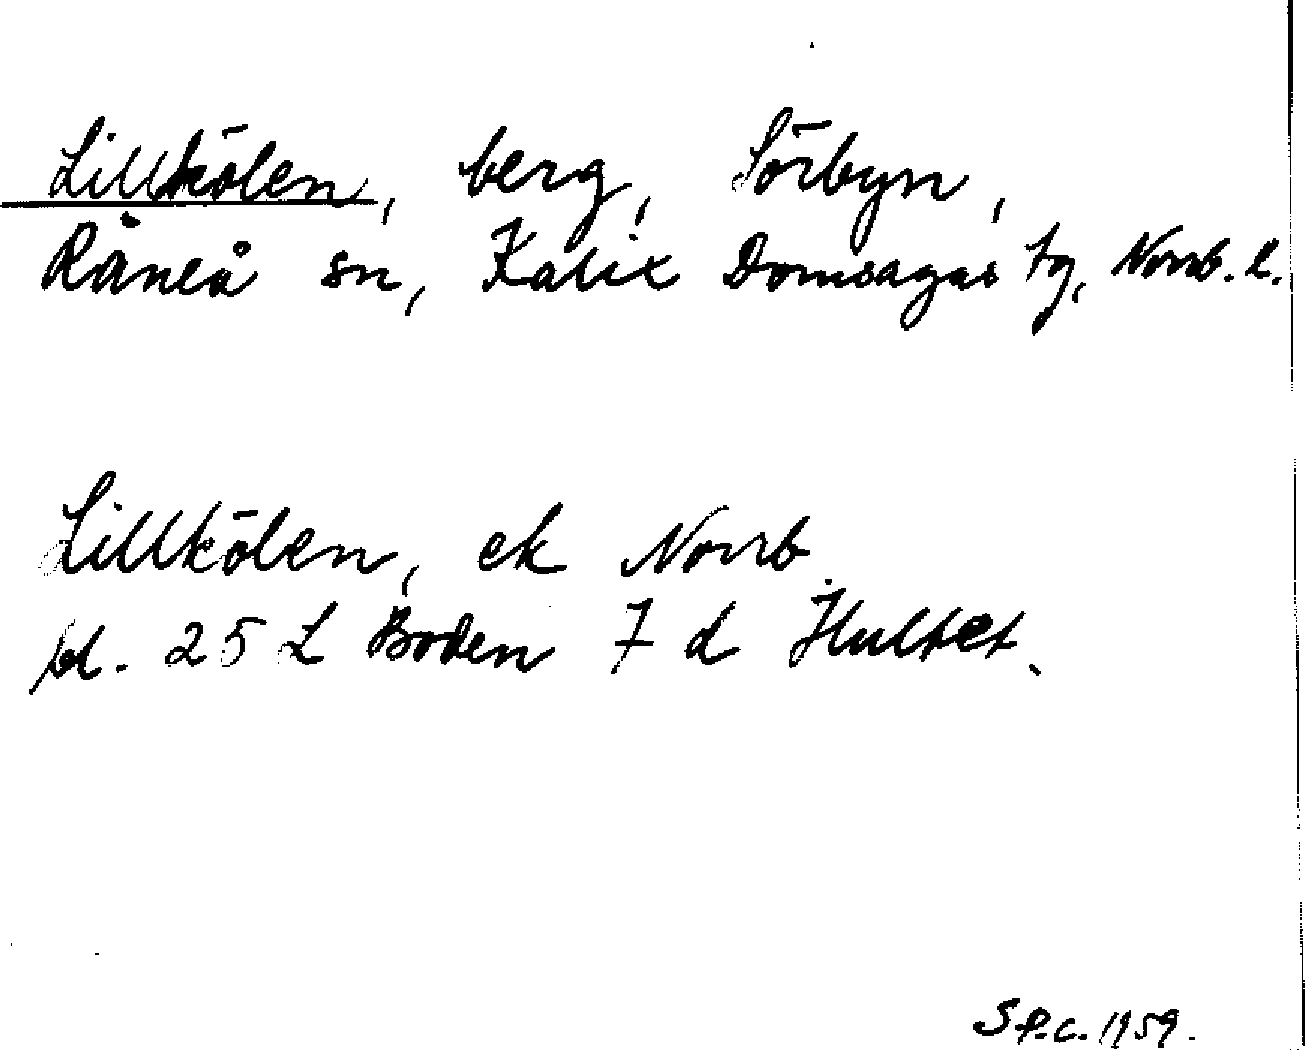 Lillkölen, berg, Sörbyn,
Råneå sn, Kalix Domsagas tg, Norrb. l.
Lillkölen, ek Norrb
bl. 25 L Boden 7 d Hultet.
S P.C. 1959.